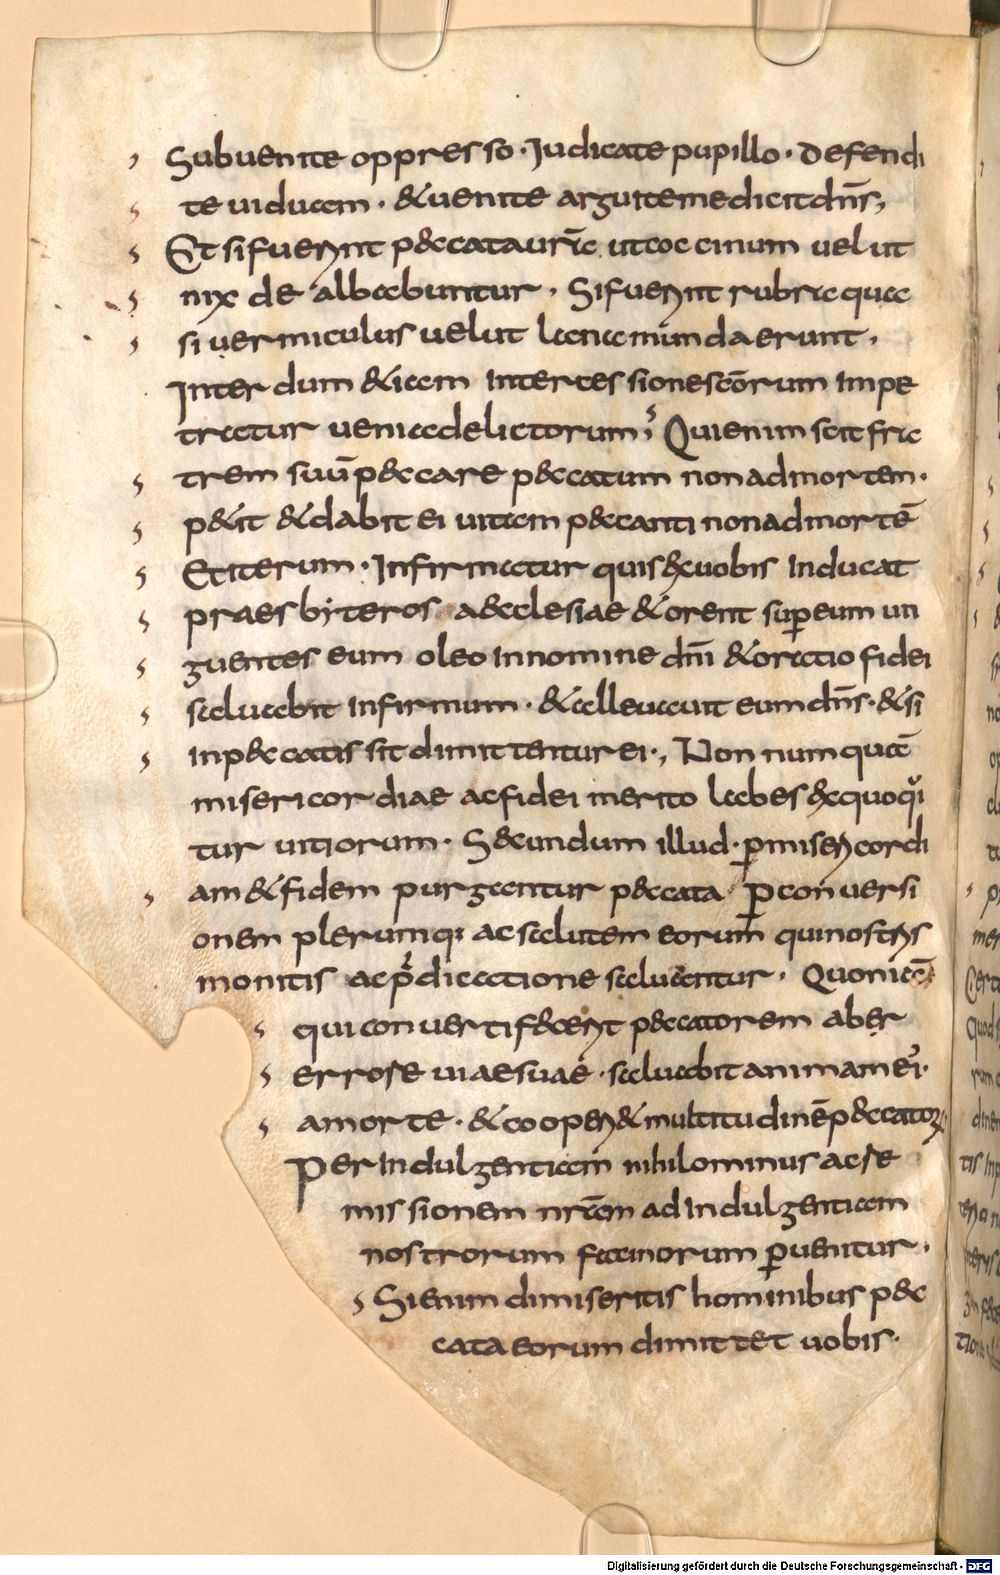 Subuenite oppresso · Iudicate pupillo · Defendi
te uiduam · & uenite arguite me dicit dn̄s,
Et si fuerint peccata ur̄a ut coccinum uelut
nix dealbabuntur · Si fuerint rubra quasi
si uermiculus uelut lana munda erunt ·
Interdum & iam intercessione sc̄orum impe
tratur uenia delictorum; Qui enim scit fra
trem suū peccare peccatum non ad mortem ·
petit & dabit ei uitam peccanti non ad mortē
Et iterum · Infirmatur quis ex uobis inducat
praesbiteros aecclesiae & orent super eum un
guentes eum oleo in nomine dn̄i & oratio fidei
saluabit infirmum · & alleuauit eum dn̄s · & si
in peccatis sit dimittentur ei ·, Non numquā
misericordiae ac fidei merito labes
tur uitiorum · Secundum illud · p̱ misericordi
am & fidem purgantur peccata P̱ conuersi
onem plerumq; ac salutem eorum qui nostris
monitis ac p̄dicatione saluantur · Quoniā
qui conuerti fecerit peccatorem ab er
rore uiae suae · saluabit animam ei᾿ ·
a morte · & cooperi& multitudinē peccatoꝝ
Per indulgentiam nihilominus ac re
missionem nr̄am ad indulgentiam
nostrorum facinorum p̱uenitur ·
Si enim dimiseritis hominibus pec
cata eorum dimittet uobis ·
Digitalisierung gefördert durch die Deutsche Forschungsgemeinschaft - DFG